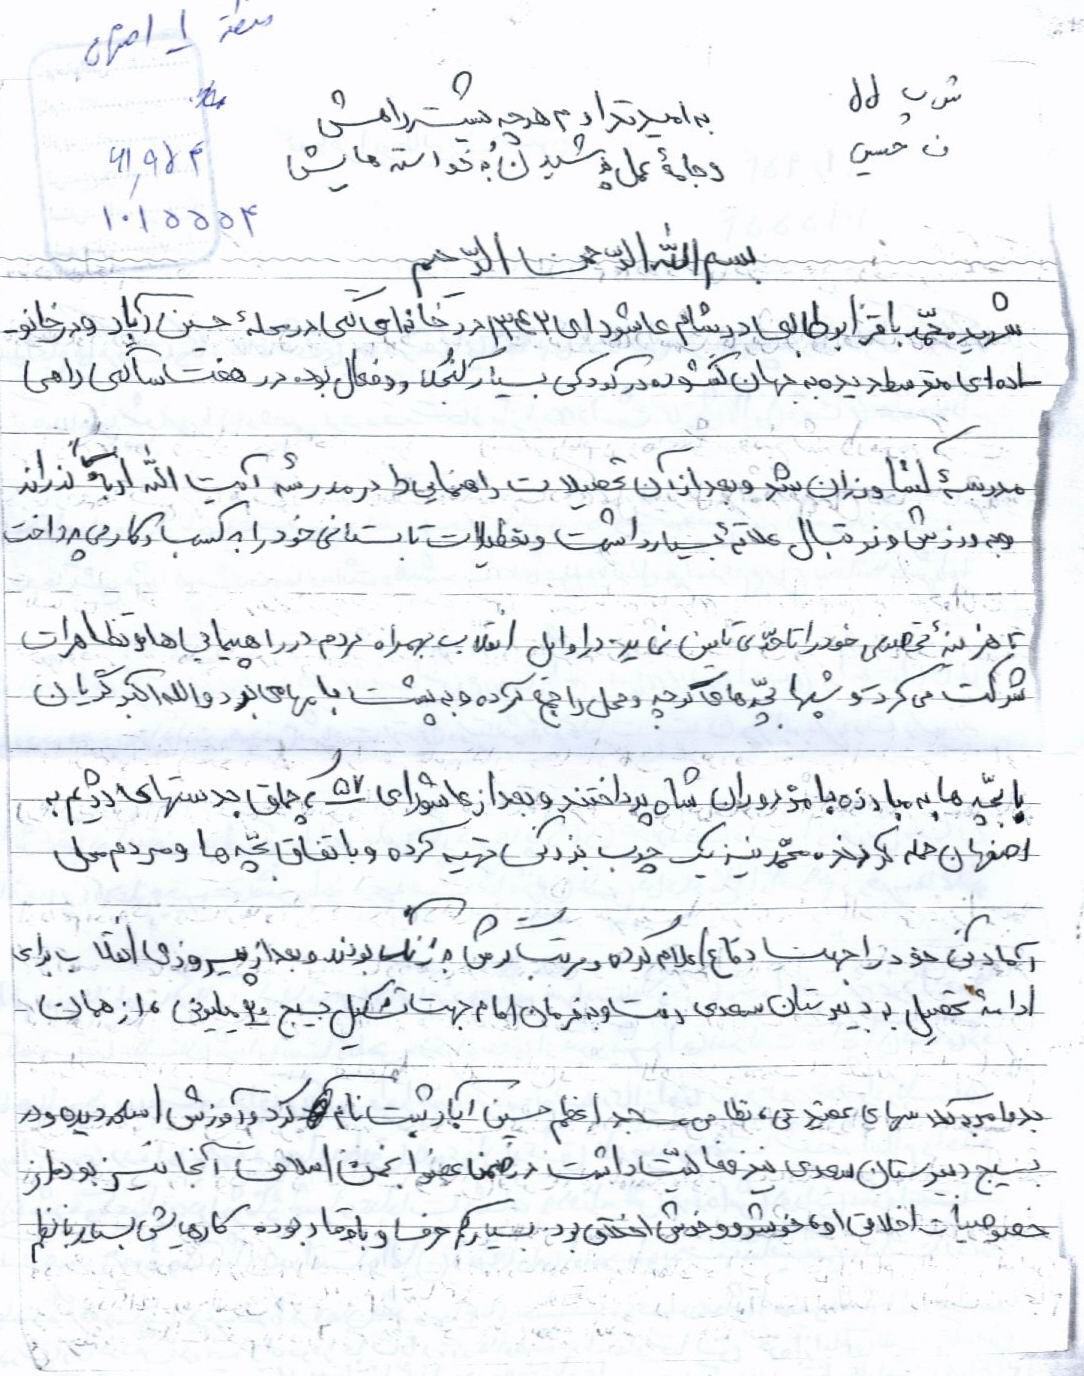 منطقه ۱ اصفهان
ش پ ۵۵
ن خمینی
به امید تداوم هر چه بیشتر راهش
و جامهٔ عمل پوشیدن به خواسته هایش
۶۱,۹۵۴
۱۰۱۵۵۵۴
بسم الله الرّحمن الرّحیم
شهید محمّد باقر ابوطالبی در شام عاشورای ۱۳۴۲ در خانه‌ای گلی در محلهٔ حسین آباد و در خانو-
اده‌ای متوسط دیده به جهان گشوده در کودکی بسیار کنجکاو و فعال بوده در هفت سالگی راهی
مدرسهٔ کشاورزان شد و بعد از آن تحصیلات راهنمایی را در مدرسه آیت الله گذراند
و به ورزش و فوتبال علاقهٔ بسیار داشت و تعطیلات تابستانی خود را به کسب و کار می پرداخت
تا هزینهٔ تحصیلی خود را تا حدّی تامین نماید در اوایل انقلاب به همراه مردم در راهپیمایی ها و تظاهرات
شرکت می کرد و شبها بچّه های کوچه و محل را جمع کرده و به پشت بامها می برد و الله اکبر گویان
با بچّه ها به مبارزه با مزدوران شاه پرداختند و بعد از عاشورای ۵۷ که چماق بدستهای رژیم به
اصفهان حمله کردند محمّد نیز یک چوب بزرگی تهیه کرده و با تفاق بچّه ها و مردم محل
آمادگی خود را جهت دفاع اعلام کرده و مرتب گوش به زنگ بودند و بعد از پیروزی انقلاب برای
ادامهٔ تحصیل به دبیرستان سعدی رفت و به فرمان امام جهت تشکیل بسیج ۲۰ میلیونی ، از همان
بدو امر به کلاسهای عقیدتی ، نظامی مسجد اعظم حسین آباد ثبت نام کرد و آموزش اسلحه دیده و در
بسیج دبیرستان سعدی نیز فعالیّت داشت در ضمن عضو انجمن اسلامی آنجا نیز بود و از
خصوصیات اخلاقی او ، خوشرو و خوش اخلاق بود بسیار کم حرف و با وقار بوده کارهایش بسیار با نظم